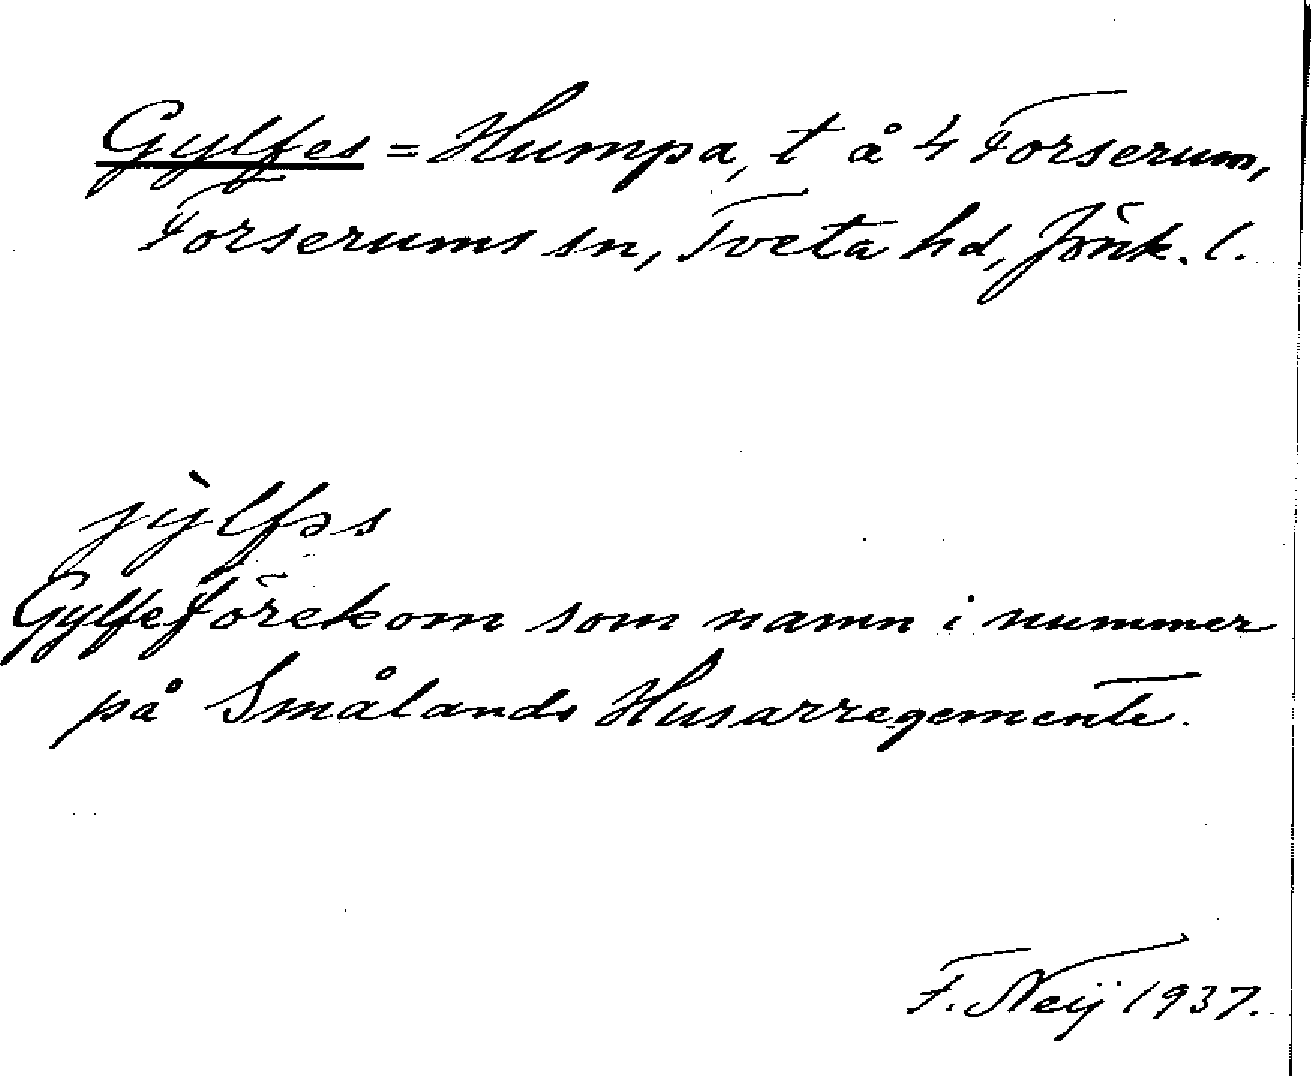 Gylfes = Humpa, t å 4 Forserum,
Forserums sn, Tveta hd, Jönk. l.
jy̆̀lfəs
Gylfe förekom som namn i nummer
på Smålands Husarregemente.
F. Neij 1937.